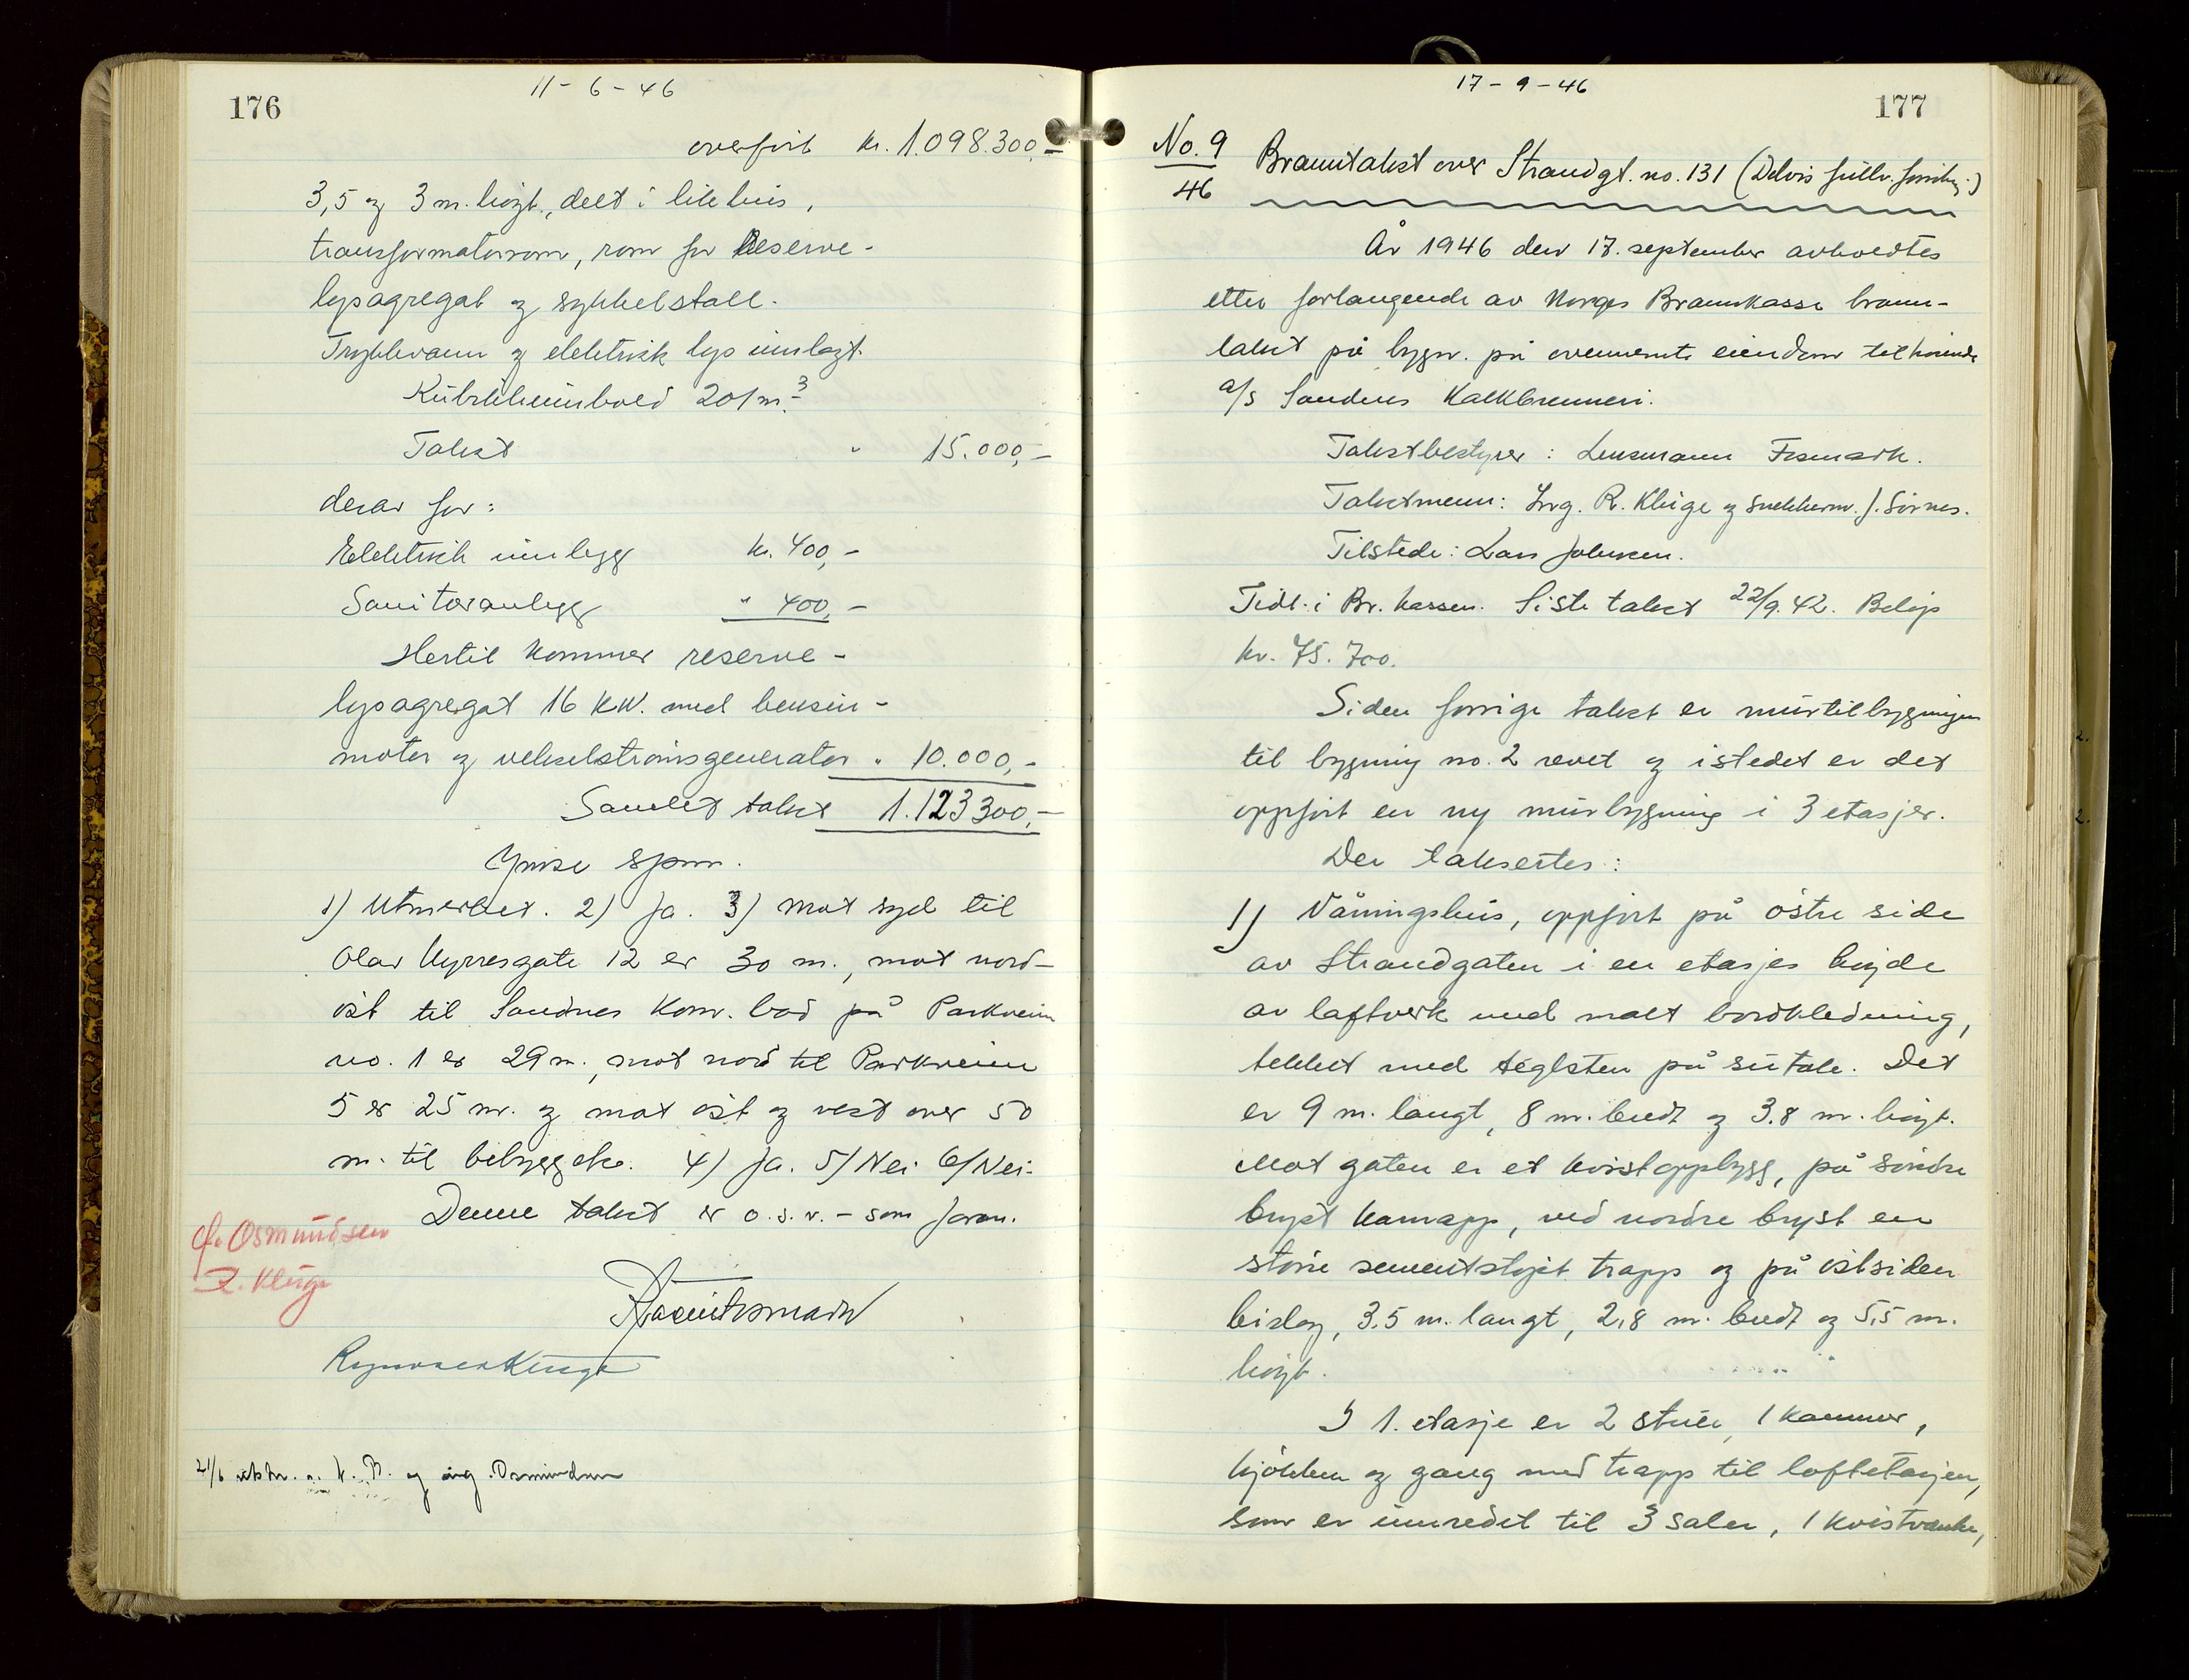 176
11-6-46
overført kr. 1.098.300,-
3,5 og 3 m. høgt, delt i likhus,
transformatorrom, rom for Reserve-
lysagregat og sykkelstall.
Trykkvann og elektrisk lys innlagt.
Kubikkinnhold 201 m.3
Takst " 15.000,-
derav for:
Elektrisk innlegg kr. 400,-
Sanitæranlegg " 400,-
Hertil kommer reserve-
lysagregat 16 KW. med bensin-
motor og vekselstrømsgenerator " 10.000,-
Samlet takst 1.123300,-
Ymse spm.
1) Utmerket. 2) Ja. 3) mot syd til
Olav Kyrresgate 12 er 30 m., mot nord-
øst til Sandnes Kom. bad på Parkveien
no. 1 er 29 m., mot nord til Parkveien
5 er 25 m. og mot øst og vest over 50
m. til bebyggelse. 4) Ja. 5) Nei 6) Nei.
Denne takst er o.s.v. - som foran.
Osmundsen
R. Kluge
Raymond Kluge
21/6 utskr. og ing. Osmundsen
17-9-46
177
No. 9
46
Branntakst over Strandgt. no. 131 (Delvis fullv. forsikr.)
År 1946 den 17. september avholdtes
etter forlangende av Norges Brannkasse brann-
takst på bygn. på ovennevnte eiendom tilhørende
A/S Sandnes Kalkbrenneri.
Takstbestyrer: Lensmann Fosmark.
Takstmenn: Ing. R. Kluge og snekkerm. J. Sørnes.
Tilstede: Lars Johnsen.
Tidl. i Br. kassen. Siste takst 22/9.42. Beløp
kr. 75.700.
Siden forrige takst er murtilbygningen
til bygning no. 2 revet og istedet er det
oppført en ny murbygning i 3 etasjer.
Der taksertes:
1) Våningshus, oppført på østre side
av Strandgaten i en etasjes høyde
av laftverk med malt bordkledning,
tekket med teglsten på sutak. Det
er 9 m. langt, 8 m. bredt og 3.8 m. høgt.
Mot gaten er et kvistoppbygg, på søndre
bryst karnapp, ved nordre bryst en
større sementstøpt trapp og på østsiden
bislag, 3,5 m. langt, 2,8 m. bredt og 5,5 m.
høgt.
I 1. etasje er 2 stuer, 1 kammer,
kjøkken og gang med trapp til loftetasjen,
som er innredet til 3 saler, 1 kvistværelse,